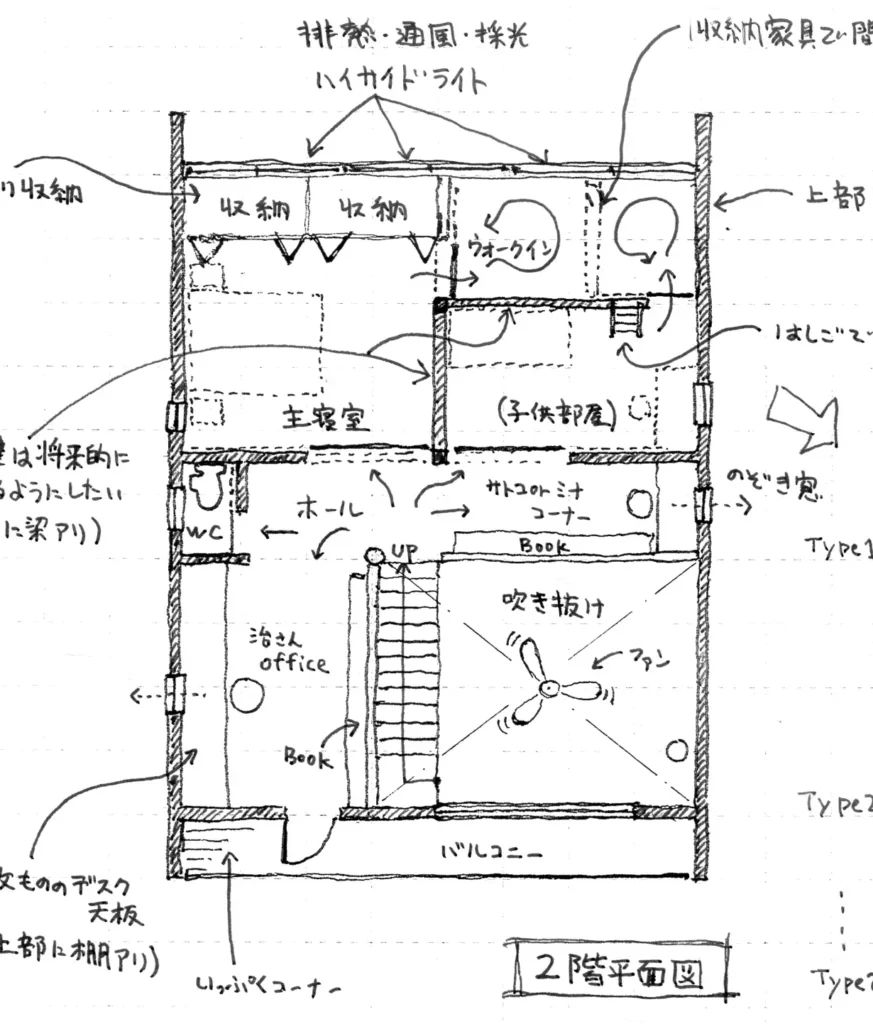 排熱・通風・採光
ハイサイドライト
収納家具で間
収納
収納
収納
ウォークイン
上部
はしごで
主寝室
(子供部屋)
は将来的に
るようにしたい
に梁アリ)
WC
ホール
サトコのトミナ
コーナー
のぞき窓
Book
UP
Type1
吹き抜け
治さん
office
ファン
Book
Type2
バルコニー
もののデスク
天板
上部に棚アリ)
いっぷくコーナー
2階平面図
Type